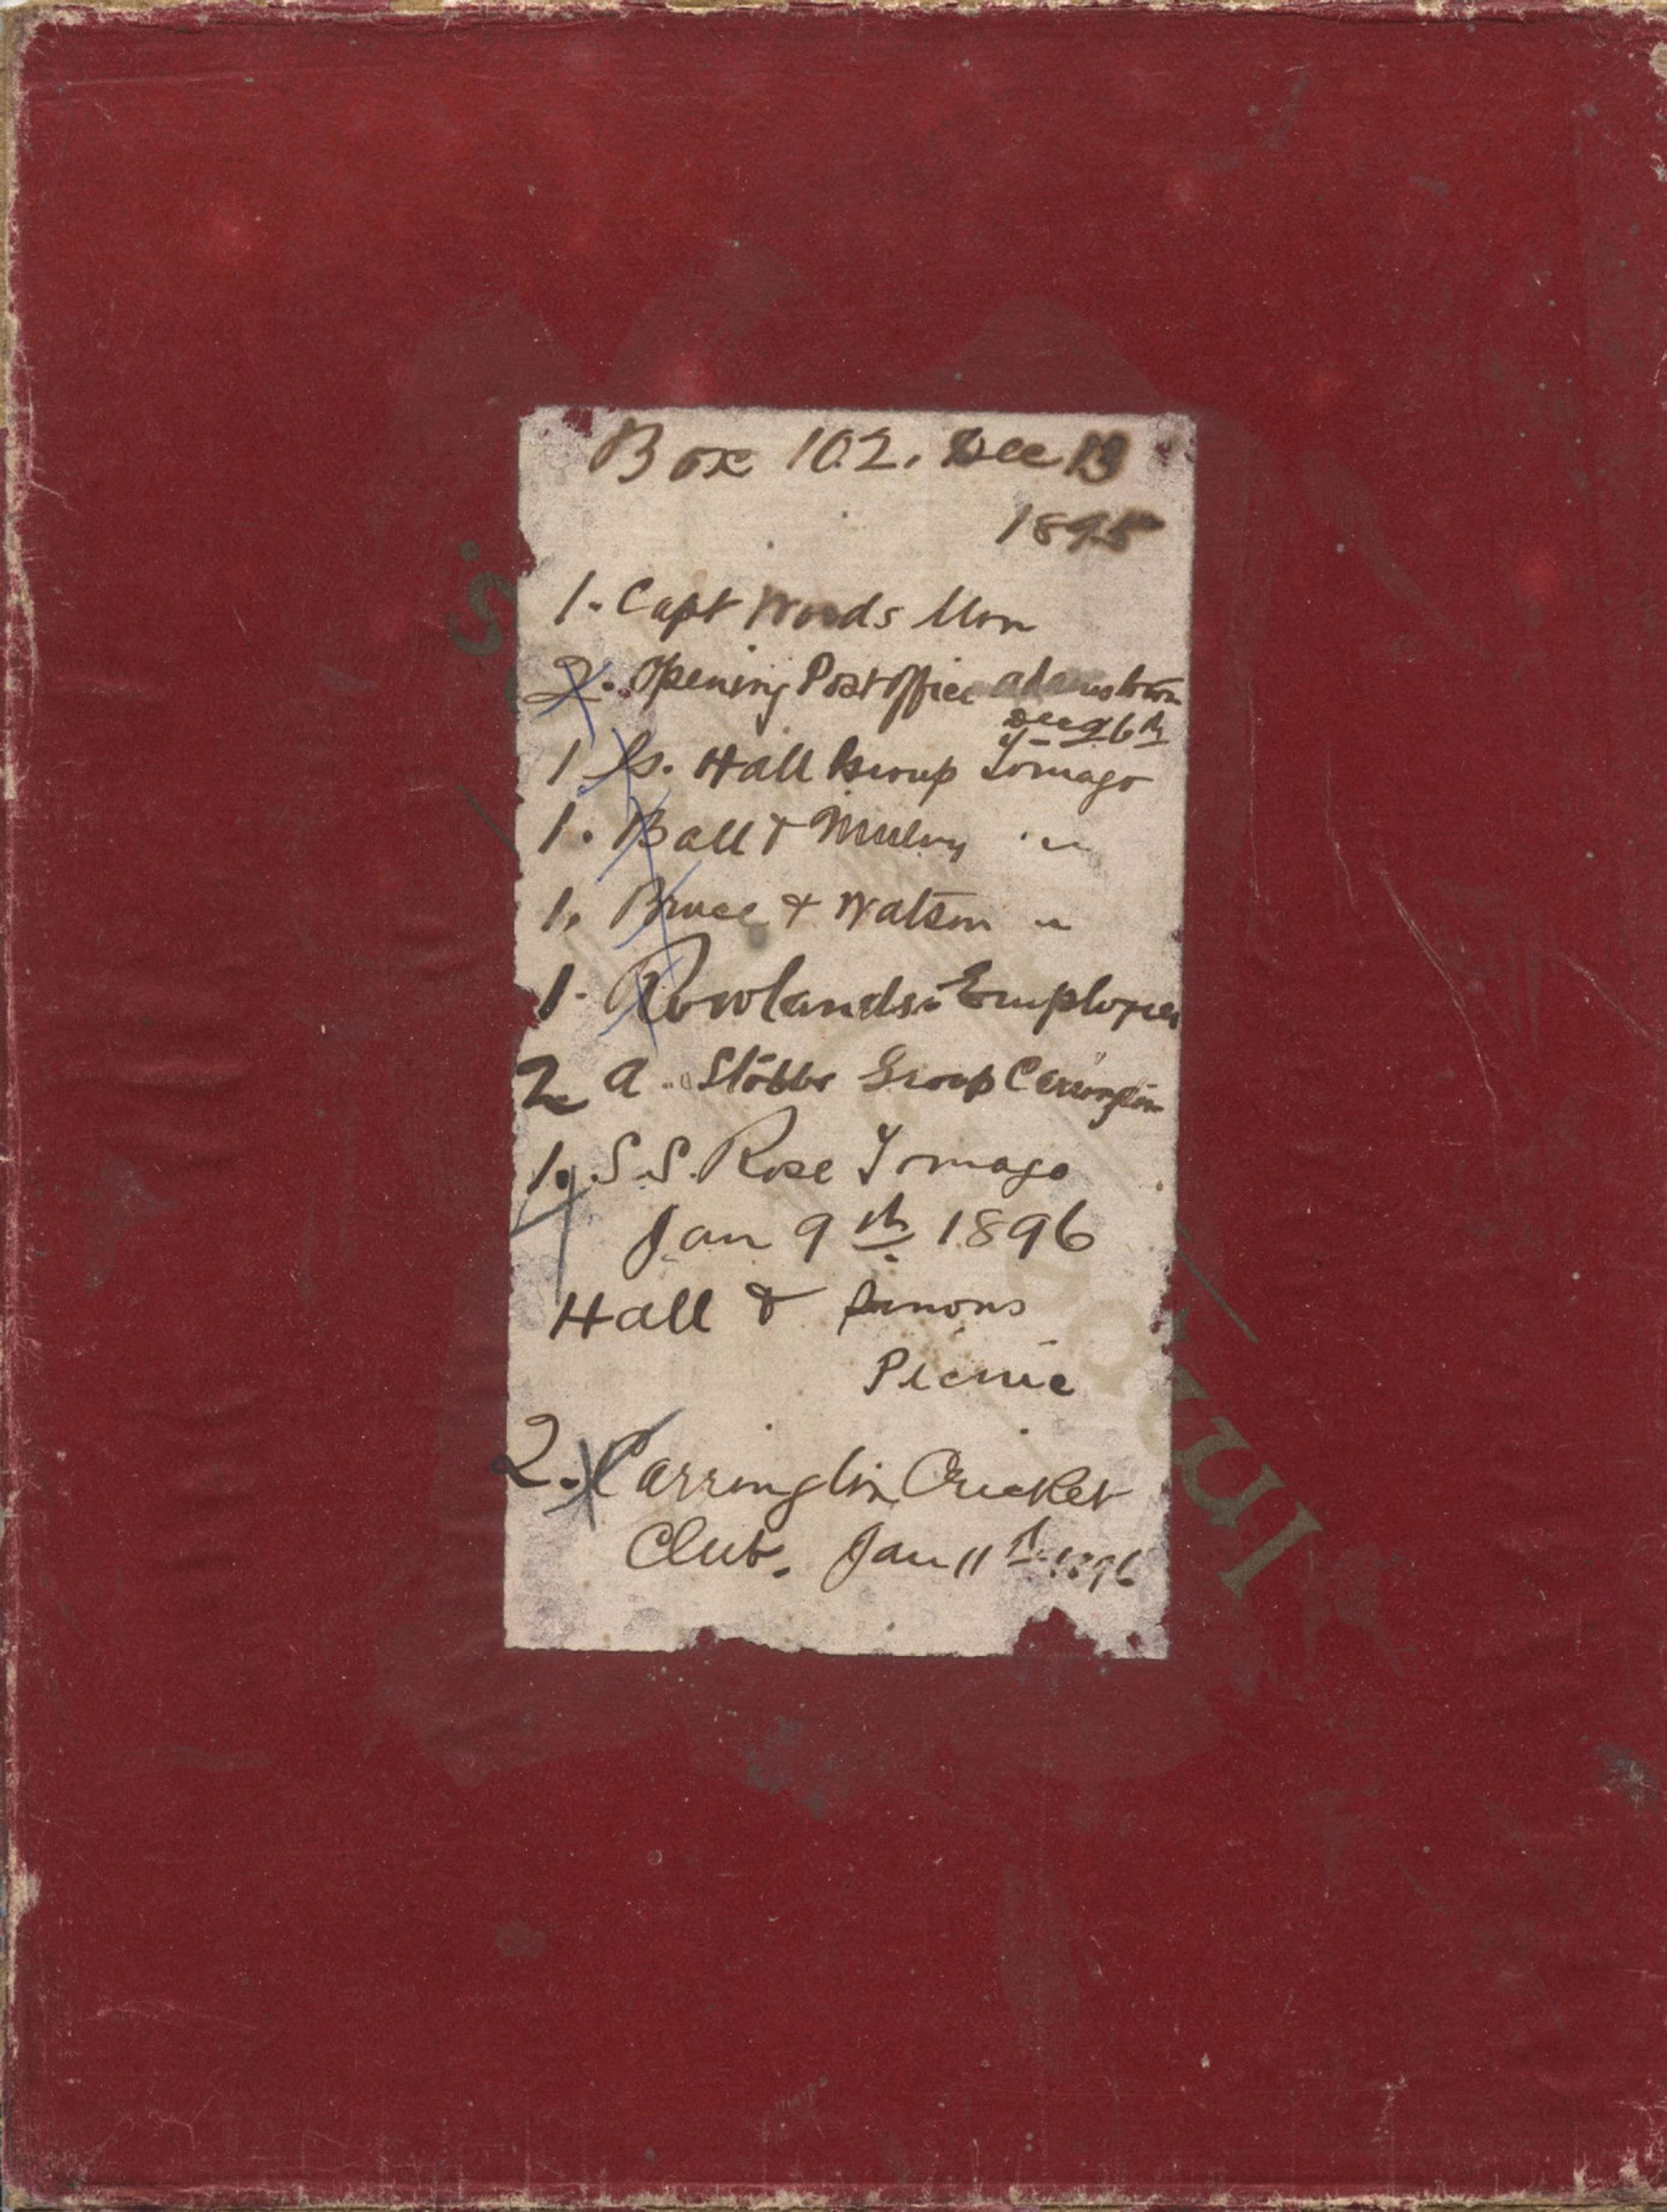 Box 102. Dec 13
1895
1. Capt Woods Mon
2. Opening Post Office Adamstown
Dec 26th
1 Hall Group Tomago
1. Ball & Mulvy "
1. Bruce & Watson "
1. Rowlands Employees
2 A. Stobbs Group Carrington
1. S.S. Rose Tomago
Jan 9th 1896
Hall & Simons
Picnic
2. Carrington Cricket
Club. Jan 11th 1896